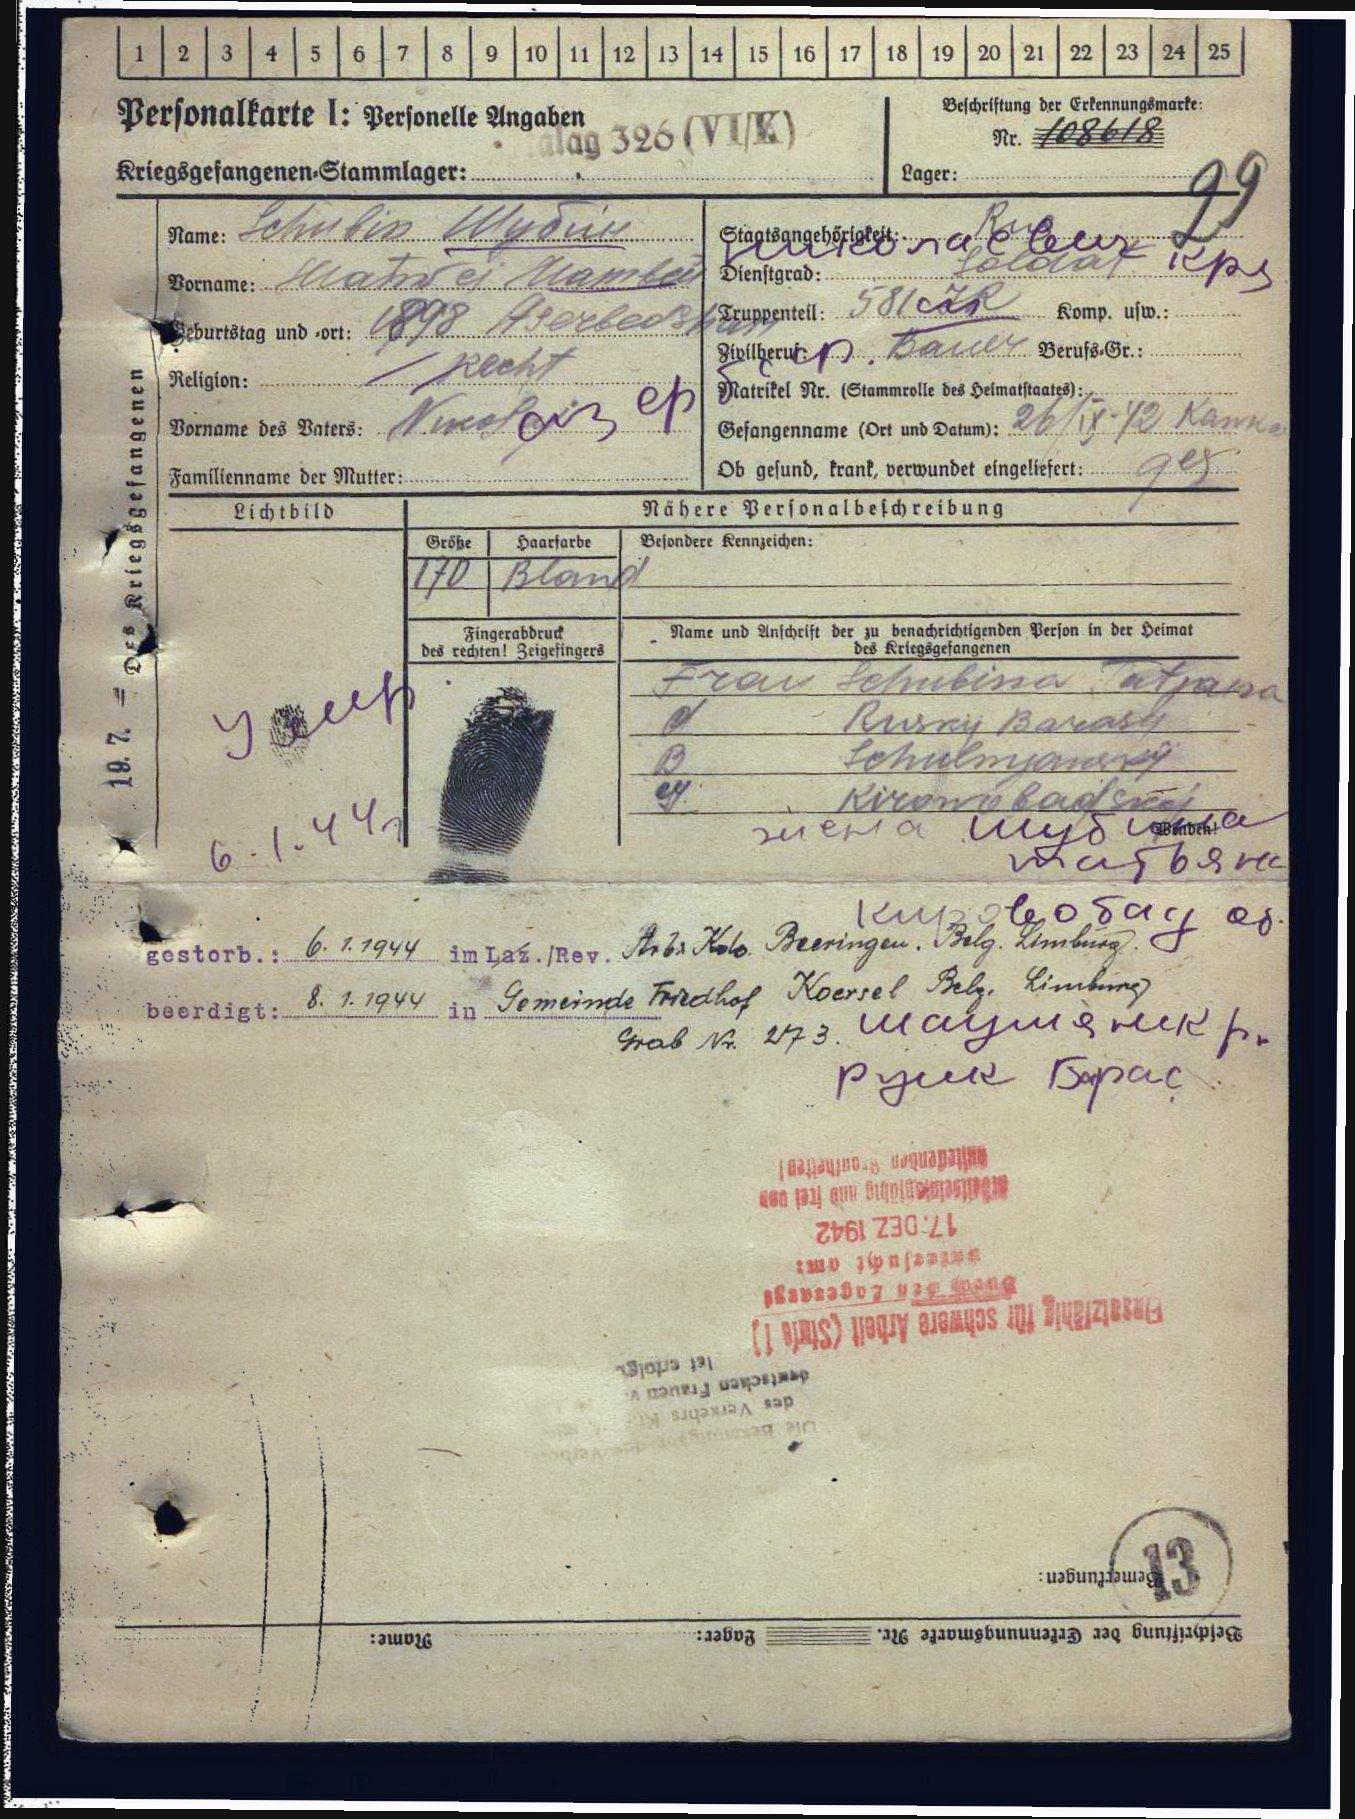 1 2 3 4 5 6 7 8 9 10 11 12 13 14 15 16 17 18 19 20 21 22 23 24 25
Personalkarte I: Personelle Angaben
alag 326 (VI/K)
Kriegsgefangenen-Stammlager:
Beschriftung der Erkennungsmarke:
Nr. 108618
Lager:
99
Des Kriegsgefangenen
19. 7. =
Name: Schubin Шубин
Vorname: Matwei Матвей
Geburtstag und -ort: 1898 Aserbedshan
Religion: Recht
Vorname des Vaters: Nikolai
аз ср
Familienname der Mutter:
Staatsangehörigkeit: Rus
николаевич
Dienstgrad: Soldat кря
Truppenteil: 581 IR Komp. usw.:
Zivilberuf: Bauer Berufs-Gr.:
Matrikel Nr. (Stammrolle des Heimatstaates):
Gefangenname (Ort und Datum): 26/IX-42
Ob gesund, krank, verwundet eingeliefert: ges
Lichtbild
Nähere Personalbeschreibung
Größe Haarfarbe Besondere Kennzeichen:
170 Bland
Fingerabdruck
des rechten! Zeigefingers
Name und Anschrift der zu benachrichtigenden Person in der Heimat
des Kriegsgefangenen
Frau Schubina Tatjana
d Rusky Barasy
B Schulmjanskij
Kirowobadskij
Wenden!
Умер
6.1.44г
жена Шубина
татьяна
Кировобад об.
gestorb.: 6.1.1944 im Laz./Rev. Arb. Kdo. Beeringen. Belg. Limburg.
beerdigt: 8.1.1944 in Gemeinde Friedhof Koersel Belg. Limburg
Grab Nr. 273.
шаумяник р.
руик Барас
Einsatzfähig für schwere Arbeit (Stufe 1)
Durch den Lagerarzt
untersucht am:
17. DEZ. 1942
arbeitseinsatzfähig und frei von
ansteckenden Krankheiten!
des Verkehrs
deutschen Frauen
ist erfolgt.
13
Bemerkungen:
Beschriftung der Erkennungsmarke Nr. Lager: Name: